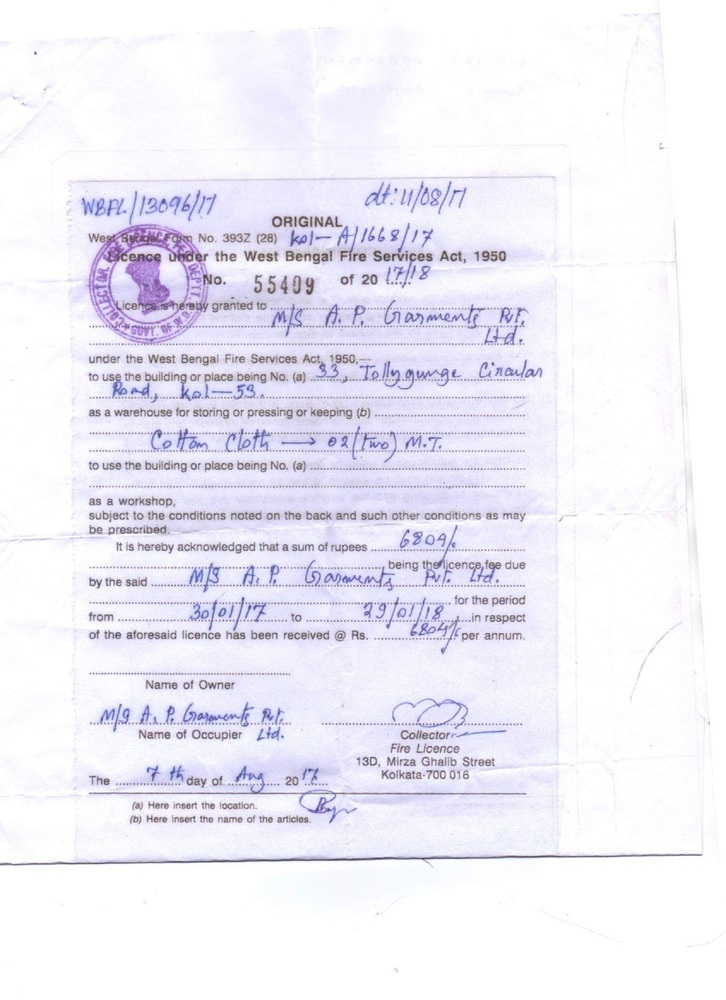 WBFL/13096/17 dt: 11/08/17
ORIGINAL
West Bengal Form No. 393Z (28) Kol-A/1668/17
Licence under the West Bengal Fire Services Act, 1950
No. 55409 of 2017/18
Licence is hereby granted to M/S A. P. Garments Pvt.
Ltd.
under the West Bengal Fire Services Act, 1950,—
to use the building or place being No. (a) 33, Tollygunge Circular
Road, Kol-53.
as a warehouse for storing or pressing or keeping (b)
Cotton Cloth → 02 (two) M.T.
to use the building or place being No. (a)
as a workshop,
subject to the conditions noted on the back and such other conditions as may
be prescribed.
It is hereby acknowledged that a sum of rupees 6804/-
being the licence fee due
by the said M/S A. P. Garments Pvt. Ltd.
for the period
from 30/01/17 to 29/01/18 in respect
of the aforesaid licence has been received @ Rs. 6804/- per annum.
Name of Owner
M/S A. P. Garments Pvt.
Name of Occupier Ltd.
Collector
Fire Licence
13D, Mirza Ghalib Street
Kolkata-700 016
The 7th day of Aug 2017
(a) Here insert the location.
(b) Here insert the name of the articles.